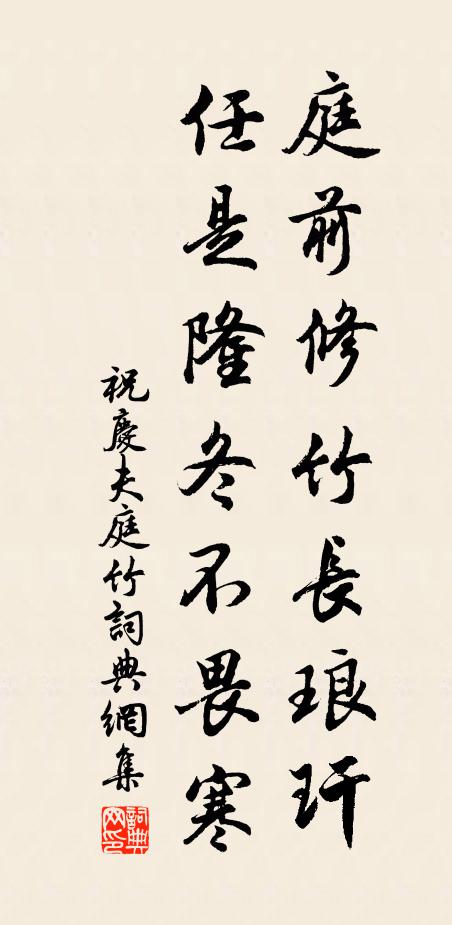 庭前修竹長琅玕
任是隆冬不畏寒
祝慶夫庭竹詞典網集
詞典網印